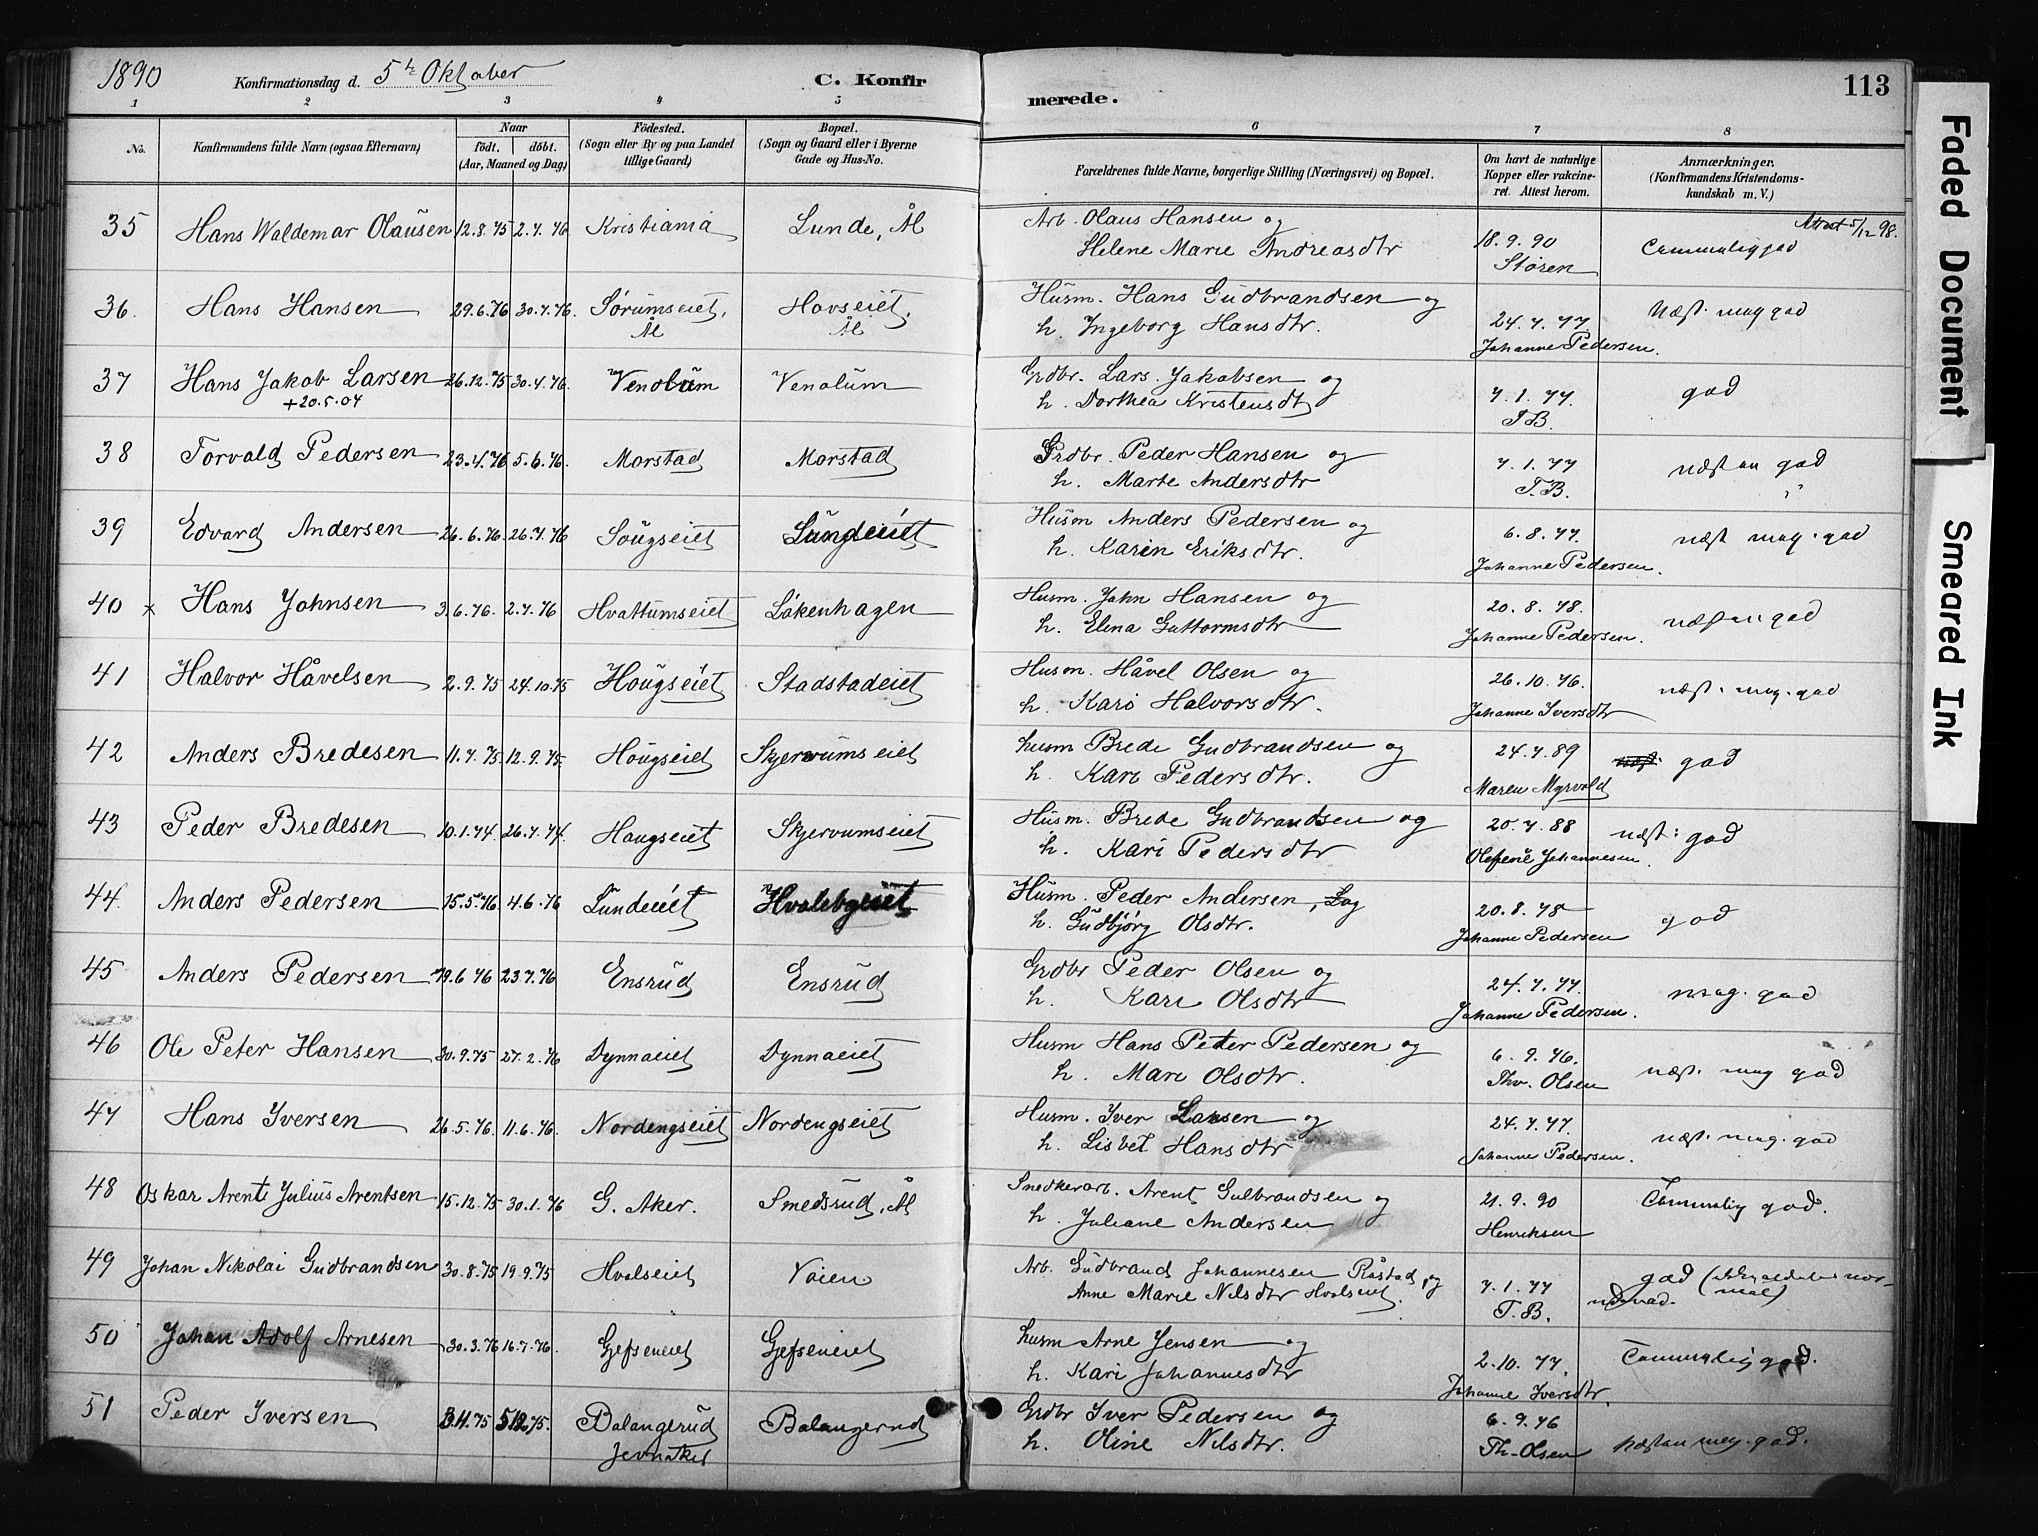 1890 Konfirmationsdag d. 5te Oktober C. Konfir merede. 113
1 2 3 4 5 6 7 8
No. Konfirmandens fulde Navn (ogsaa Efternavn) Naar født. døbt. (Aar, Maaned og Dag) Fødested. (Sogn eller By og paa Landet tillige Gaard) Bopæl. (Sogn og Gaard eller i Byerne Gade og Hus-No. Forældrenes fulde Navne, borgerlige Stilling (Næringsvei) og Bopæl. Om havt de naturlige Kopper eller vakcineret. Attest herom. Anmærkninger. (Konfirmandens Kristendomskundskab m. V.)
35 Hans Waldemar Olausen 12.8.75 2.7.76 Kristiania Lunde, Ål Arb. Olaus Hansen og 18.9.90 Attest 5/12 98.
Helene Marie Andreasdtr Støren Temmelig god
36. Hans Hansen 29.6.76 30.7.76. Sørumseiet, Hovseiet, Husm. Hans Gudbrandsen og 24.7.77. Næst. meg god
Ål Ål h. Ingeborg Hansdtr. Johanne Pedersen.
37 Hans Jakob Larsen 26.12.75 30.4.76. Venolum Venolum Grdbr. Lars Jakobsen og 7.1.77. god
+20.5.04 h. Dorthea Kristensdt T.B.
38 Torvald Pedersen 23.4.76 5.6.76. Morstad Morstad Grdbr. Peder Hansen og 7.1.77 næsten god
h. Marte Andersdtr T.B.
39 Edvard Andersen 26.6.76 26.7.76 Sougseiet Lundeeiet Husm Anders Pedersen og 6.8.77. næst meg. god
h. Karen Eriksdtr. Johanne Pedersen.
40 x Hans Johnsen 3.6.76. 2.7.76 Hvattumseiet Løkenhagen Husm. John Hansen og 20.8.78. næsten god
h. Elena Guttormsdtr Johanne Pedersen.
41 Halvor Håvelsen 2.9.75 24.10.75 Hougseiet Stadstadeiet Husm. Håvel Olsen og 26.10.76. næst. meg. god
h. Kari Halvorsdtr. Johanne Iversdtr
42 Anders Bredesen 11.7.75 12.9.75. Hougseiet Skjervumseiet husm Brede Gudbrandsen og 24.7.89 god
h. Kari Pedersdtr. Maren Myrvold
43 Peder Bredesen 10.1.74. 26.7.74. Haugseiet Skjervumseiet Husm. Brede Gudbrandsen og 20.7.88 næst: god
h. Kari Pedersdtr Johannesen
44. Anders Pedersen 15.5.76. 4.6.76 Lundeeiet Hvalebyeiet Husm. Peder Andersen, og 20.8.78 god
h. Gudbjørg Olsdtr. Johanne Pedersen
45 Anders Pedersen 19.6.76 23.7.76 Ensrud Ensrud Grdbr Peder Olsen og 24.7.77. meg. god
h. Kari Olsdtr Johanne Pedersen.
46 Ole Peter Hansen 30.9.75 27.2.76 Dynnaeiet Dynnaeiet Husm Hans Peter Pedersen og 6.9.76. næst. meg god
h. Mari Olsdtr. Thv. Olsen
47 Hans Iversen 26.5.76. 11.6.76. Nordengseiet Nordengseiet Husm. Iver Larsen og 24.7.77. næst. meg. god
h. Lisbet Hansdtr Johanne Pedersen.
48 Oskar Arent Julius Arentsen 15.12.75 30.1.76 G. Aker. Smedsrud, Ål Snedkerarb. Arent Gulbrandsen og 21.9.90 Temmelig god.
h. Juliane Andersen Henriksen
49 Johan Nikolai Gudbrandsen 30.8.75 19.9.75 Hvalseiet Vaien Arb. Gudbrand Johannesen Råstad, og 7.1.77 god
Anne Marie Nilsdtr Hvalseiet. T.B.
50 Johan Adolf Arnesen 30.3.76 16.7.76. Gjefseneiet Gjefseneiet husm Arne Jensen og 2.10.77 Temmelig god.
h. Kari Johannesdtr Johanne Iversdtr.
51 Peder Iversen 3.11.75 5.12.75. Balangerud Balangerud Grdbr Iver Pedersen og 6.9.76
Jevnaker h. Oline Nilsdtr. Th. Olsen næsten meg. god.
Faded Document
Smeared Ink